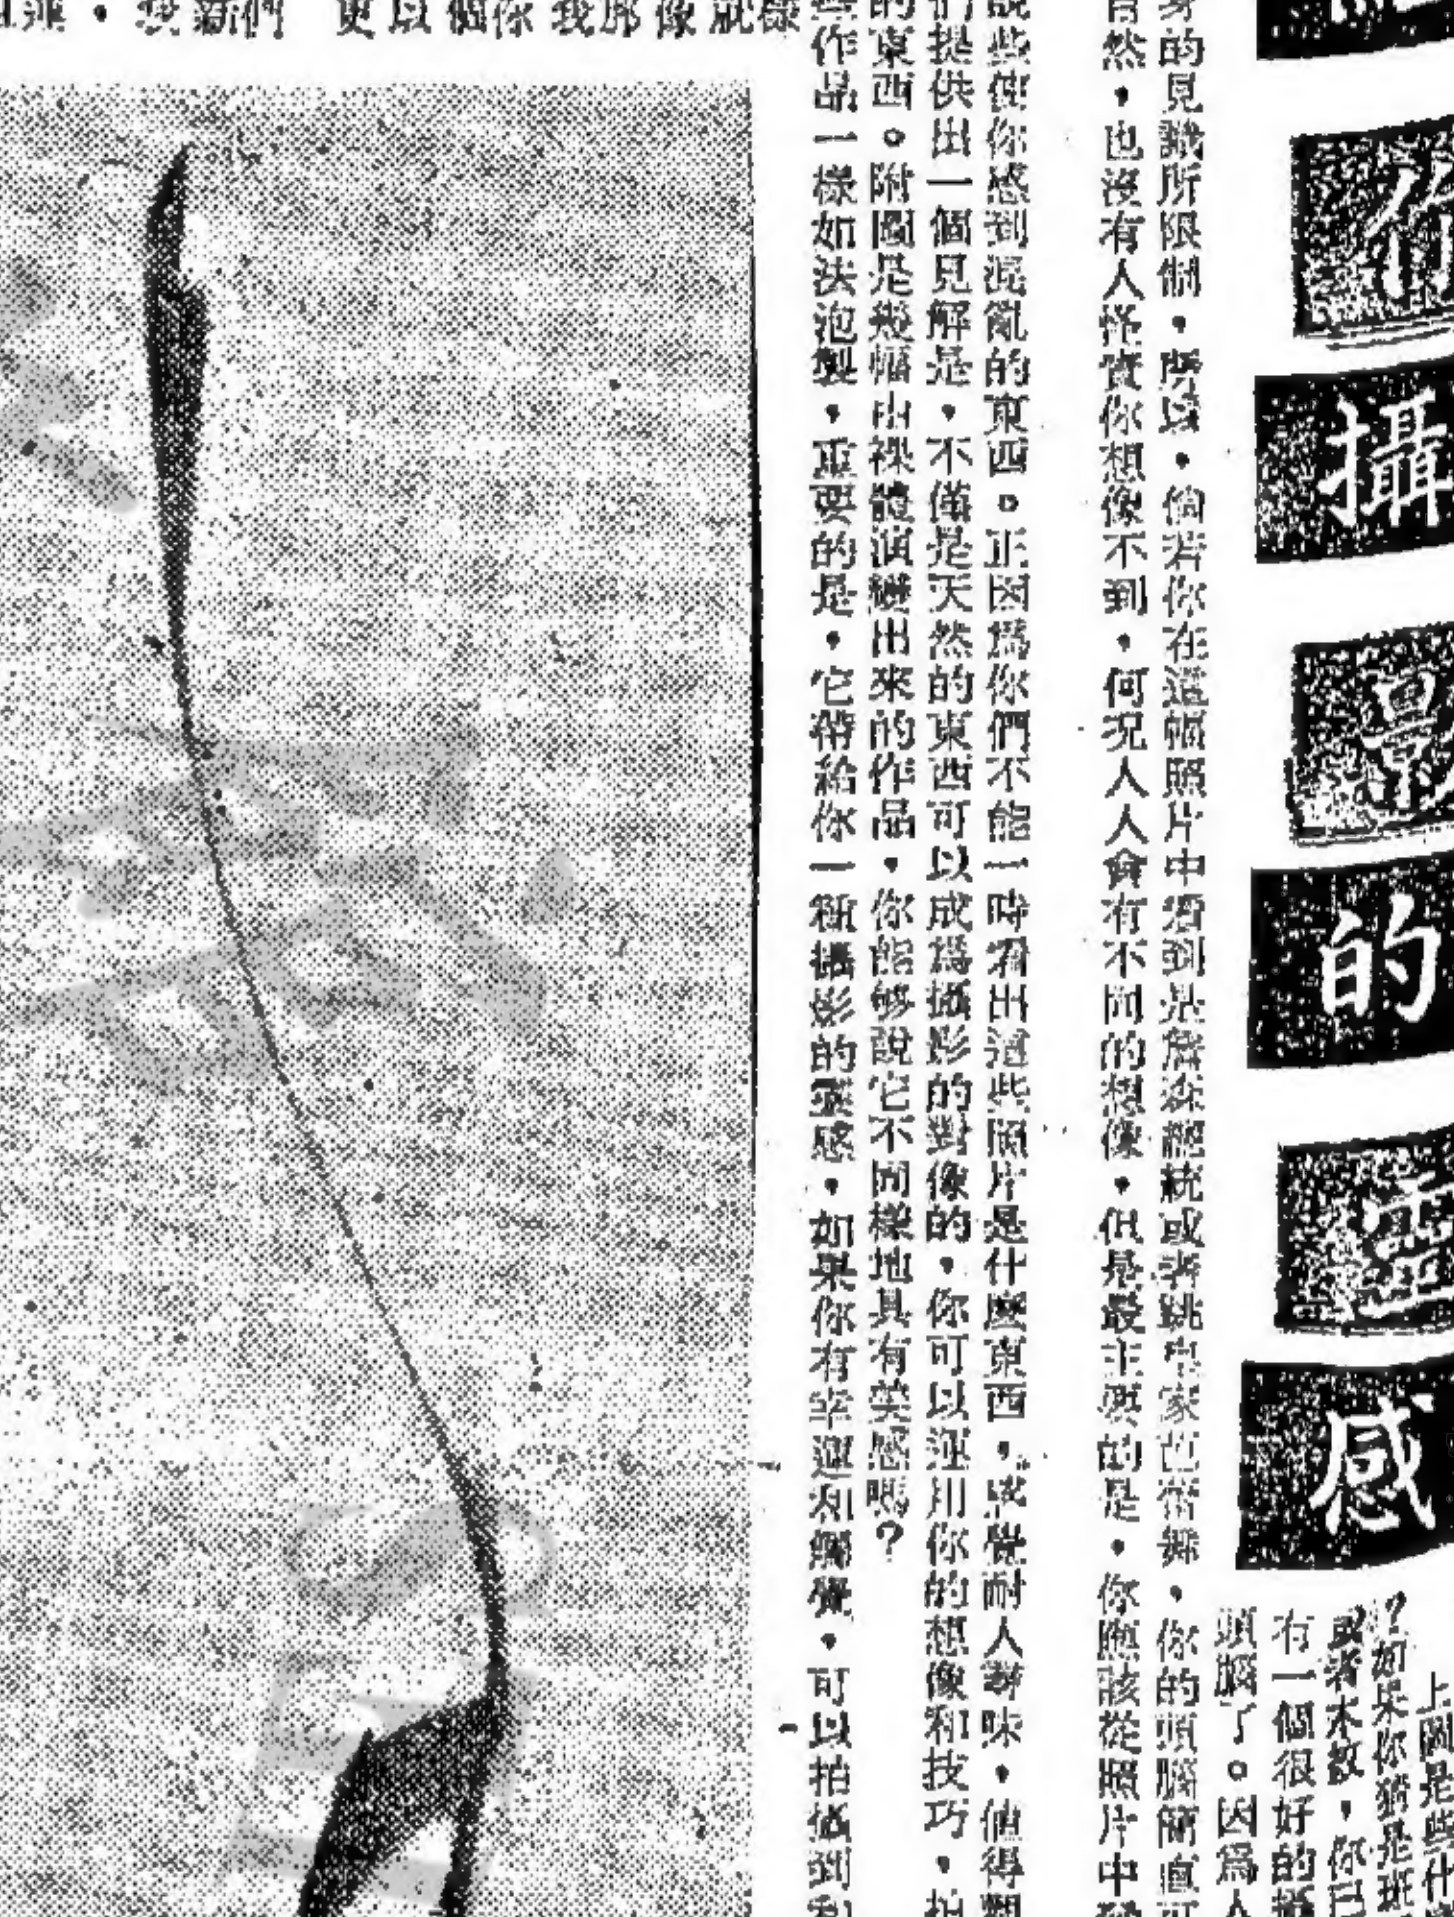 術攝影的靈感
上圖是些什
?如果你猜是斑
或者木紋，你已
有一個很好的攝
頭腦了。因爲人
身的見識所限制，所以，倘若你在這幅照片中看到是詹森總統或者跳芭蕾舞，你的頭腦簡直可
自然，也沒有人怪責你想像不到，何况人人會有不同的想像，但是最主要的是，你應該從照片中
說些使你感到混亂的東西。正因爲你們不能一時看出這些照片是什麽東西，感覺耐人尋味，值得
們提供出一個見解是，不僅是天然的東西可以成爲攝影的對像的，你可以運用你的想像和技巧，拍
的東西。附圖是幾幅由裸體演變出來的作品，你能够說它不同樣地具有美感嗎?
些作品一樣如法泡製，重要的是，它帶給你一種攝影的靈感，如果你有幸運和觸覺，可以拍攝到和
更以個你我那像就樣